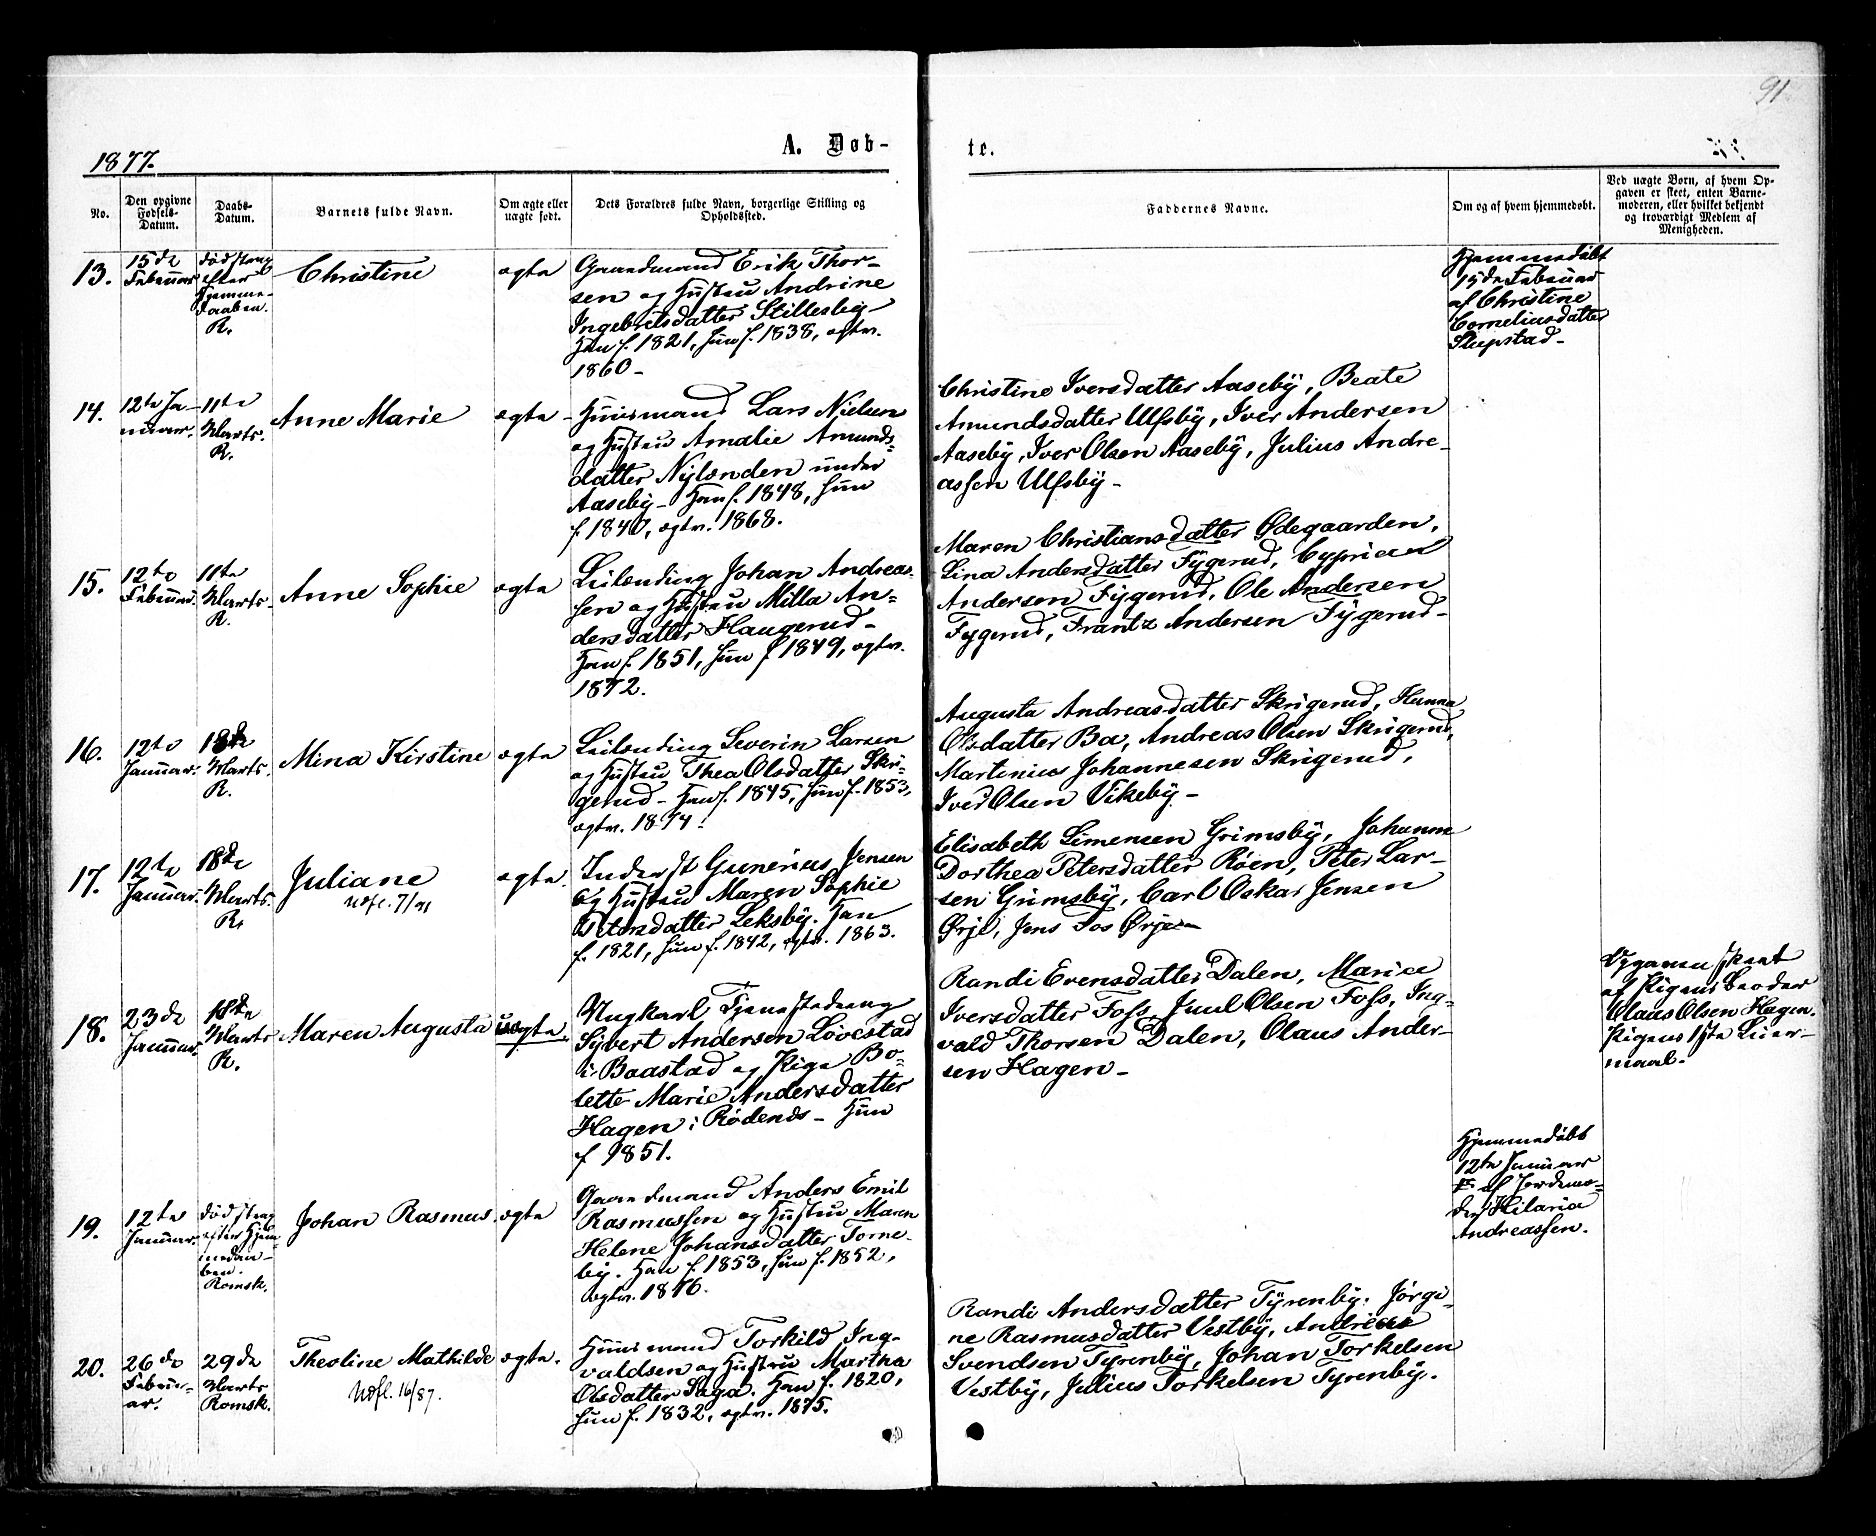 91
1877.
A. Døb-
te.
No.
Den opgivne
Fødsels-
Datum.
Daabs-
Datum.
Barnets fulde Navn.
Om ægte eller
uægte født.
Dets Forældres fulde Navn, borgerlige Stilling og
Opholdssted.
Faddernes Navne.
Om og af hvem hjemmedøbt.
Ved uægte Børn, af hvem Op-
gaven er skeet, enten Barne-
moderen, eller hvilket bekjendt
og troværdigt Medlem af
Menigheden.
13.
15de
Februar
død strax
efter
Hjemme-
daaben.
R.
Christine
ægte
Gaardmand Erik Thor-
sen og Hustru Andrine
Ingebretsdatter Stillesby -
Han f. 1821, hun f. 1838, ægtv.
1860 -
Hjemmedøbt
15de Februar
af Christine
Corneliusdatter
Slupstad -
14.
12te Ja-
nuar.
11te
Marts.
R.
Anne Marie
ægte
Huusmand Lars Nielsen
og Hustru Amalie Amunds-
datter Nylænden under
Aaseby - Han f. 1848, hun
f. 1840, ægtv. 1868.
Christine Iversdatter Aaseby, Beate
Amundsdatter Ulfsby, Iver Andersen
Aaseby, Iver Olsen Aaseby, Julius Andre-
assen Ulfsby -
15.
12te
Februar
11te
Marts.
R.
Anne Sophie
ægte
Leilending Johan Andreas-
sen og Hustru Milla An-
dersdatter Haugerud -
Han f. 1851, hun f. 1849, ægtv.
1872.
Maren Christiansdatter Ødegaarden,
Lina Andersdatter Fygerud, Cyprian
Andersen Fygerud, Ole Andersen
Fygerud, Frantz Andersen Fygerud -
16.
12te
Januar.
18de
Marts.
R.
Mina Kirstine
ægte
Leilending Severin Larsen
og Hustru Thea Olsdatter Skri-
gerud - Han f. 1845, hun f. 1853,
ægtv. 1874.
Augusta Andreasdatter Skrigerud, Hanna
Olsdatter Bø, Andreas Olsen Skrigerud,
Martinius Johannesen Skrigerud,
Iver Olsen Vikeby -
17.
12te
Januar.
18de
Marts.
R.
Juliane
Udfl. 7/91
ægte.
Inderst Gunerius Jensen
og Hustru Maren Sophie
Petersdatter Leksby. Han
f. 1821, hun f. 1842, ægtv. 1863.
Elisabeth Simensen Grimsby, Johanne
Dorthea Petersdatter Røen, Peter Lar-
sen Grimsby, Carl Oskar Jensen
Ørje, Jens Fos Ørje -
18.
23de
Januar.
18de
Marts
R.
Maren Augusta
uægte.
Ungkarl Tjenestedreng
Sybert Andersen Løvestad
i Baastad og Pige Bo-
lette Marie Andersdatter
Hagen i Rødenes - Hun
f 1851.
Randi Evensdatter Dalen, Maria
Iversdatter Foss, Juul Olsen Foss, Ing-
vald Thorsen Dalen, Olaus Ander-
sen Hagen -
Opgaven skeet
af Pigens Broder
Olaus Olsen Hagen.
Pigens 1ste Leier-
maal -
19.
12te
Januar.
død strax
efter Hjem-
medaa-
ben.
Romsk.
Johan Rasmus.
ægte
Gaardmand Anders Emil
Rasmussen og Hustru Maren
Helene Johansdatter Torne-
by. Han f. 1853, hun f. 1852,
ægtv. 1876.
Hjemmedøbt
12te Januar
af Jordemo-
der Hilaria
Andreassen.
20.
26de
Febru-
ar.
29de
Marts
Romsk.
Theoline Mathilde
Udfl. 16/87.
ægte.
Huusmand Torkild Ing-
valdsen og Hustru Martha
Olsdatter Saga. Han f. 1820,
hun f. 1832, ægtv. 1875.
Randi Andersdatter Tyrenby, Jørgi-
ne Rasmusdatter Vestby, Andreas
Svendsen Tyrenby, Johan Torkelsen
Vestby, Julius Torkelsen Tyrenby.